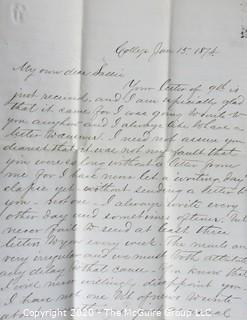 College Jan 15th 1874
My own dear Sallie
Your letter of 9th is
just received, and I am especially glad
that it came for I was going to write to
you anyhow and I always like to have a
letter to answer. I need not assure you
dearest that it was not my fault that
you were so long without a letter from
me for I have never let a writing day
elapse yet without sending a letter to
you - not one - I always write every
other day and sometimes oftener. But
never fail to send at least three
letters to you every week. The mails are
very irregular and we must both attribute
any delay to that cause - You know that
I will never willingly disappoint you
I have not one bit of news to write
Copyright 2020 - Photos.com